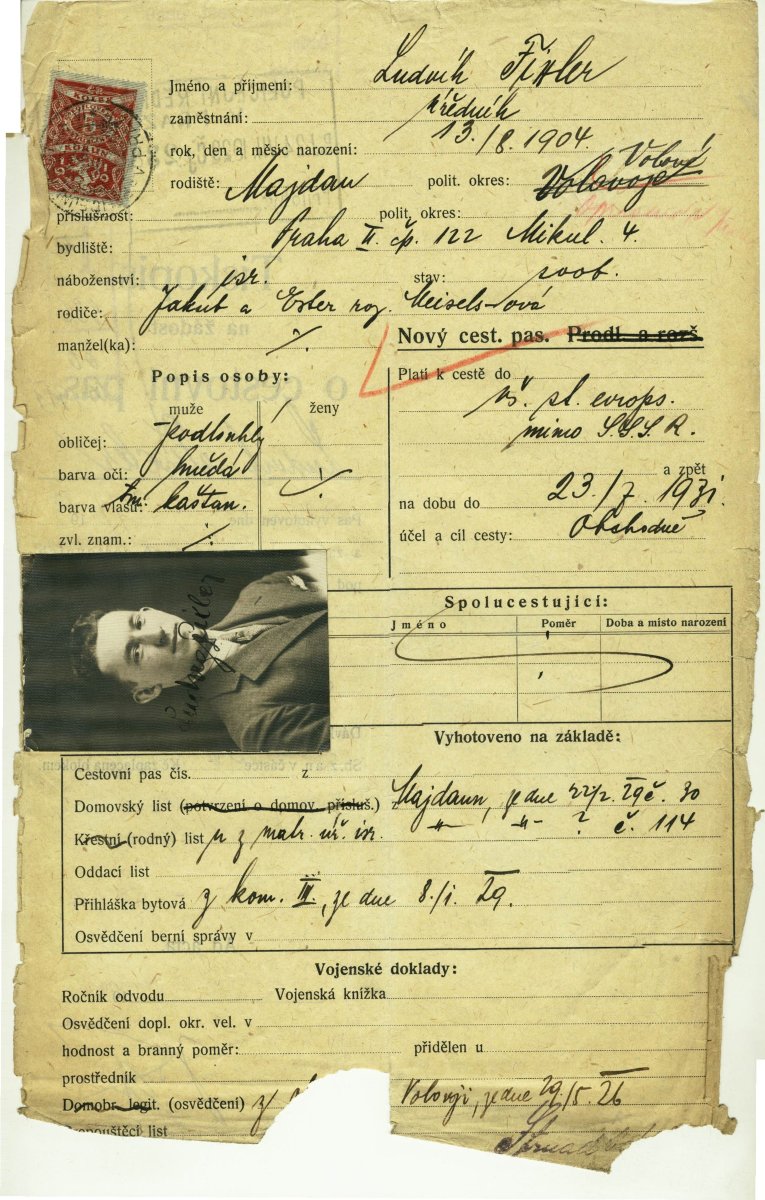 Jméno a příjmení: Ludvík Fixler
zaměstnání: úředník
rok, den a měsíc narození: 13./8. 1904
rodiště: Majdan polit. okres: Volové
příslušnost: polit. okres:
bydliště: Praha II. čp. 122 Mikul. 4.
náboženství: isr. stav: svob.
rodiče: Jakub a Ester roz. Meisels-ová
manžel(ka): ∕.
Nový cest. pas. Prodl. a rozš
Popis osoby:
muže ženy
obličej: podlouhlý
barva očí: hnědá
barva vlasů: tm. kaštan.
zvl. znam.:
Platí k cestě do vš. st. evrops.
mimo S.S.S.R.
a zpět
na dobu do 23./7. 1931.
účel a cíl cesty: Obchodně
Spolucestující:
Jméno Poměr Doba a místo narození
Vyhotoveno na základě:
Cestovní pas čís. z
Domovský list (potvrzení o domov. přísluš.) Majdann, ze dne 29 č. 30
Křestní (rodný) list z matr. úř. isr. č. 114
Oddací list
Přihláška bytová z kom. III., ze dne 8./i. 29.
Osvědčení berní správy v
Vojenské doklady:
Ročník odvodu Vojenská knížka
Osvědčení dopl. okr. vel. v
hodnost a branný poměr: přidělen u
prostředník
Domobr. legit. (osvědčení) z Volovji, ze dne 29/5. 26
Propouštěcí list